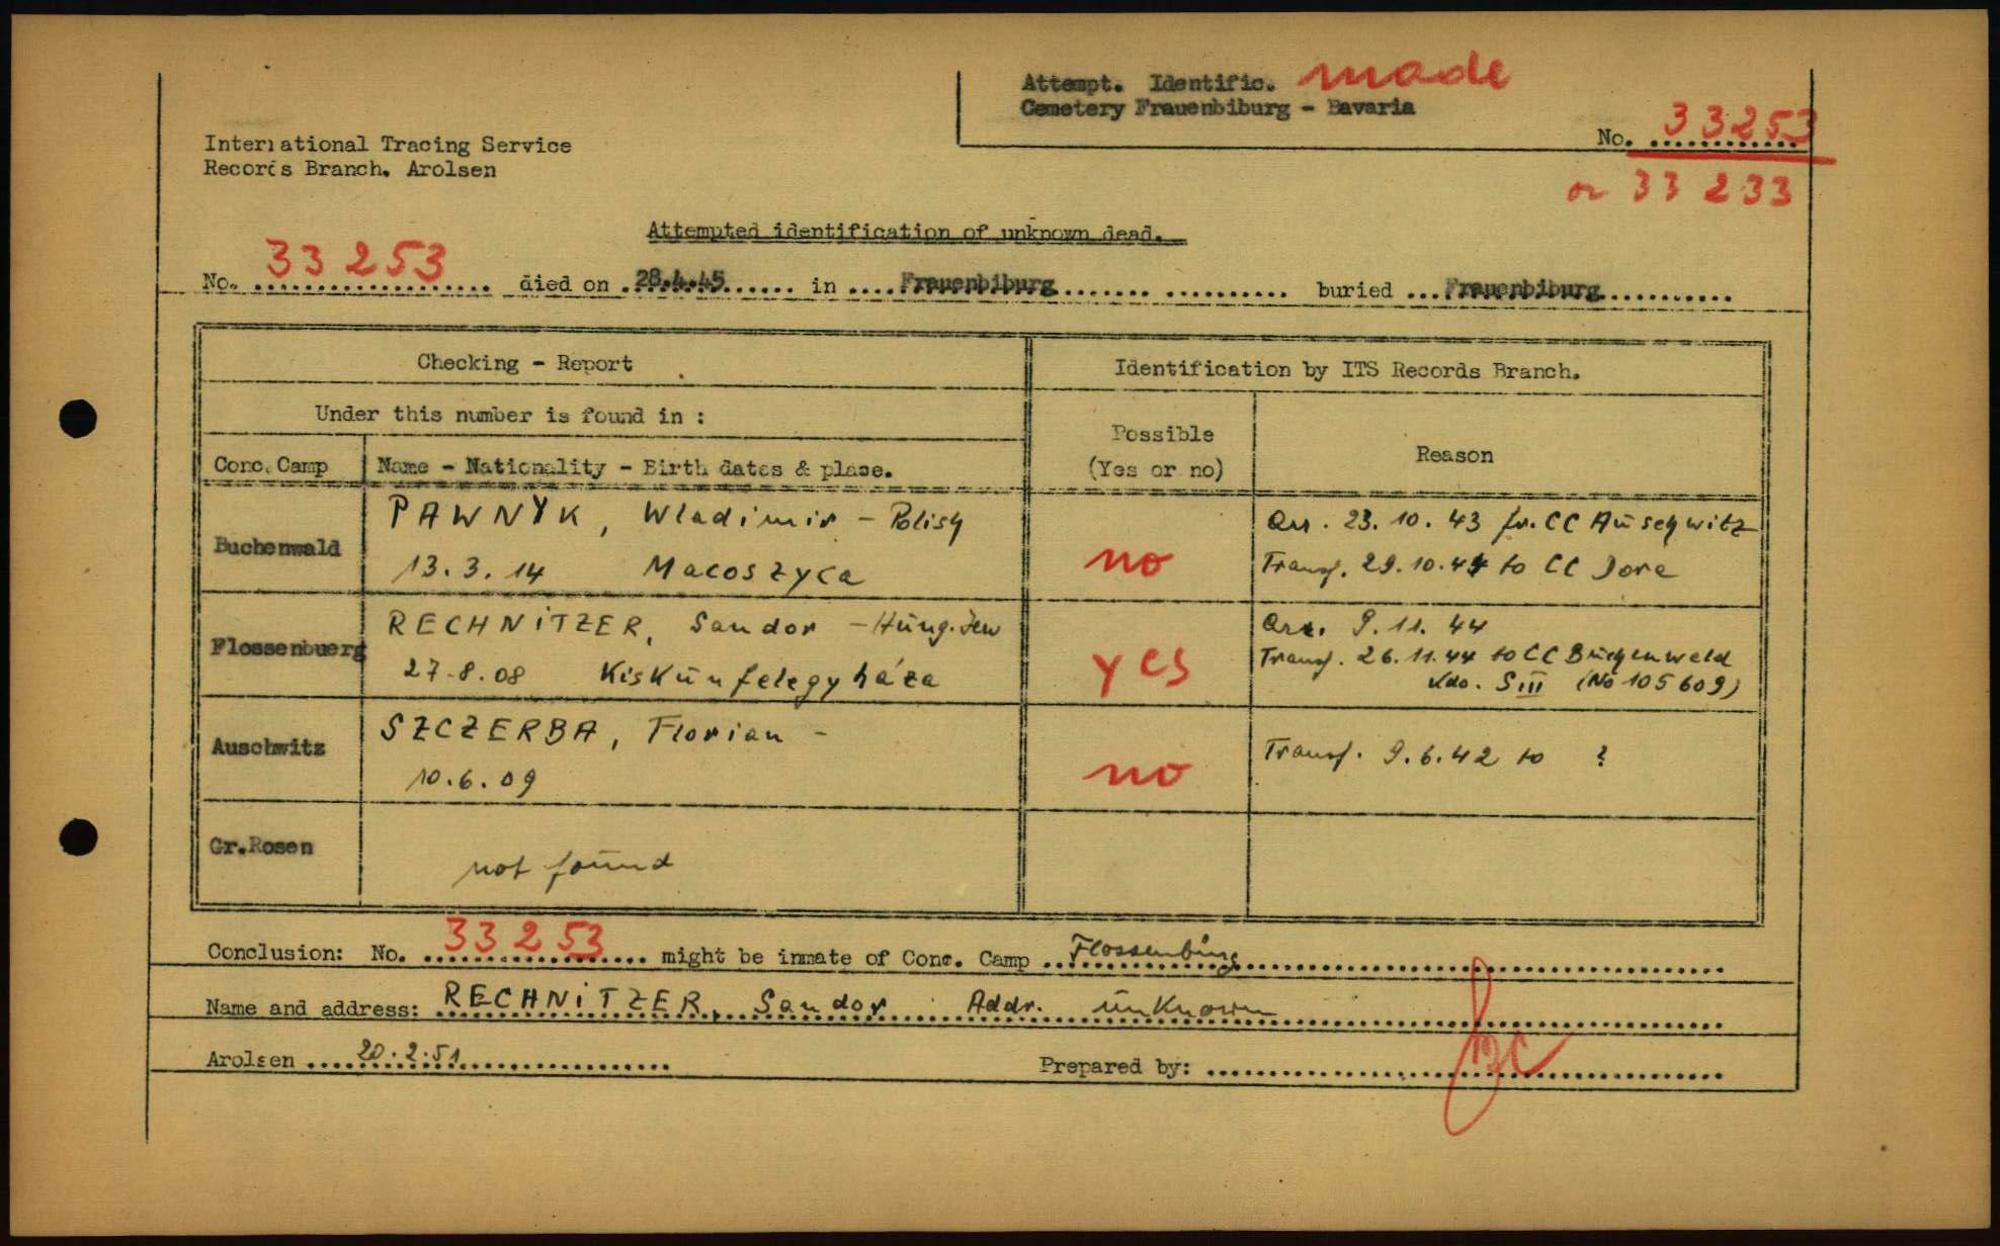 Attempt. Identific. made
Cemetery Frauenbiburg - Bavaria
No. 33253
or 33 233
International Tracing Service
Records Branch. Arolsen
Attempted identification of unknown dead.
No. 33 253 died on 28.4.45 in Frauenbiburg buried Frauenbiburg
Checking - Report
Identification by ITS Records Branch.
Under this number is found in :
Possible
(Yes or no)
Reason
Conc. Camp
Name - Nationality - Birth dates & place.
Buchenwald
PAWNYK, Wladimir - Polish
13.3.14 Macoszyca
no
Arr. 23.10.43 fr. CC Auschwitz
Transf. 29.10.44 to CC Dora
Flossenbuerg
RECHNITZER, Sandor - Hung. Jew
27.8.08 Kiskunfelegyháza
yes
Arr. 9.11.44
Transf. 26.11.44 to CC Buchenwald
Kdo. SIII (No 105609)
Auschwitz
SZCZERBA, Florian -
10.6.09
no
Transf. 9.6.42 to ?
Gr.Rosen
not found
Conclusion: No. 33 253 might be inmate of Conc. Camp Flossenbürg
Name and address: RECHNITZER, Sandor Addr. unknown
Arolsen 20.2.51
Prepared by: